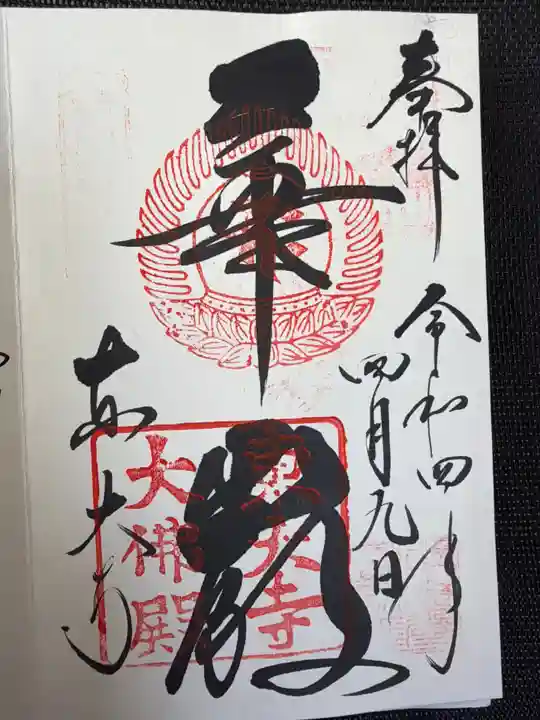 奉拝
令和四年
四月九日
華厳
東大寺
東大寺
大佛殿